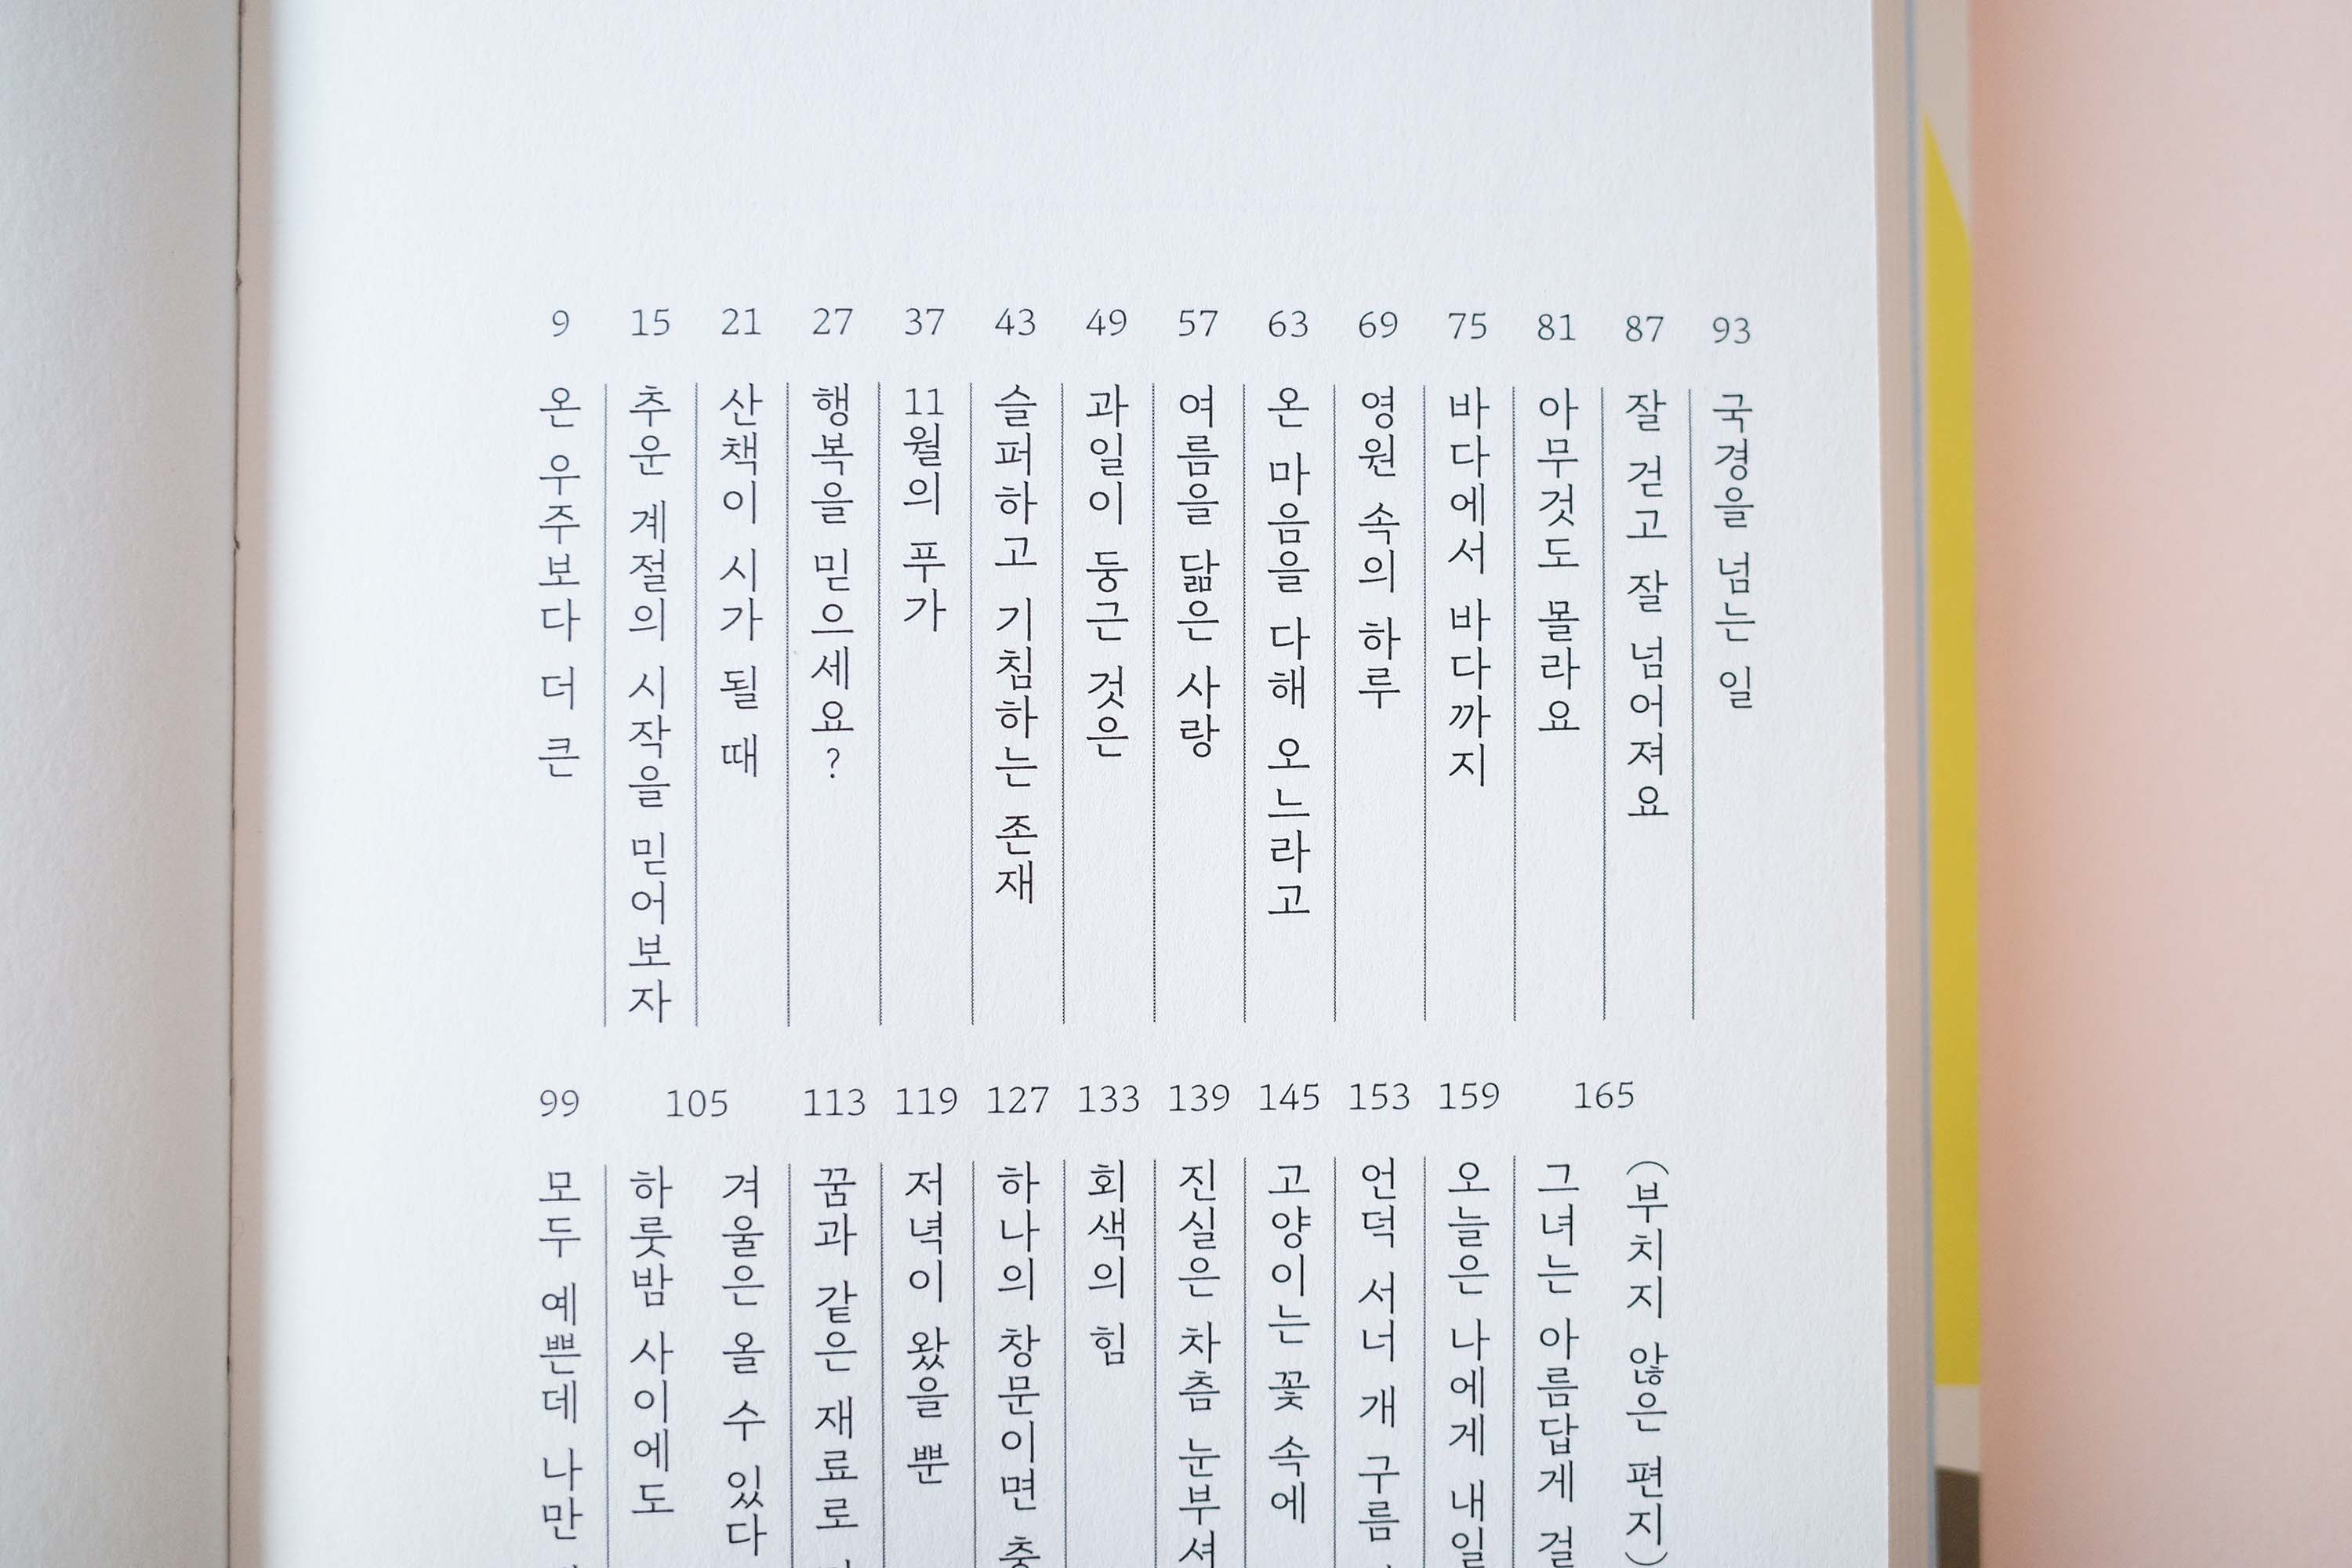 9 온 우주보다 더 큰
15 추운 계절의 시작을 믿어보자
21 산책이 시가 될 때
27 행복을 믿으세요?
37 11월의 푸가
43 슬퍼하고 기침하는 존재
49 과일이 둥근 것은
57 여름을 닮은 사랑
63 온 마음을 다해 오느라고
69 영원 속의 하루
75 바다에서 바다까지
81 아무것도 몰라요
87 잘 걷고 잘 넘어져요
93 국경을 넘는 일
99 모두 예쁜데 나만
105 하룻밤 사이에도
겨울은 올 수 있다
113 꿈과 같은 재료로
119 저녁이 왔을 뿐
127 하나의 창문이면 충
133 회색의 힘
139 진실은 차츰 눈부셔
145 고양이는 꽃 속에
153 언덕 서너 개 구름
159 오늘은 나에게 내일
165 그녀는 아름답게 걸
(부치지 않은 편지)